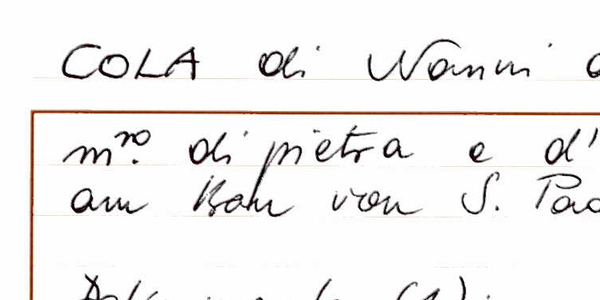 COLA di Nanni
m.ro di pietra e d'
am Bau von S. Pao